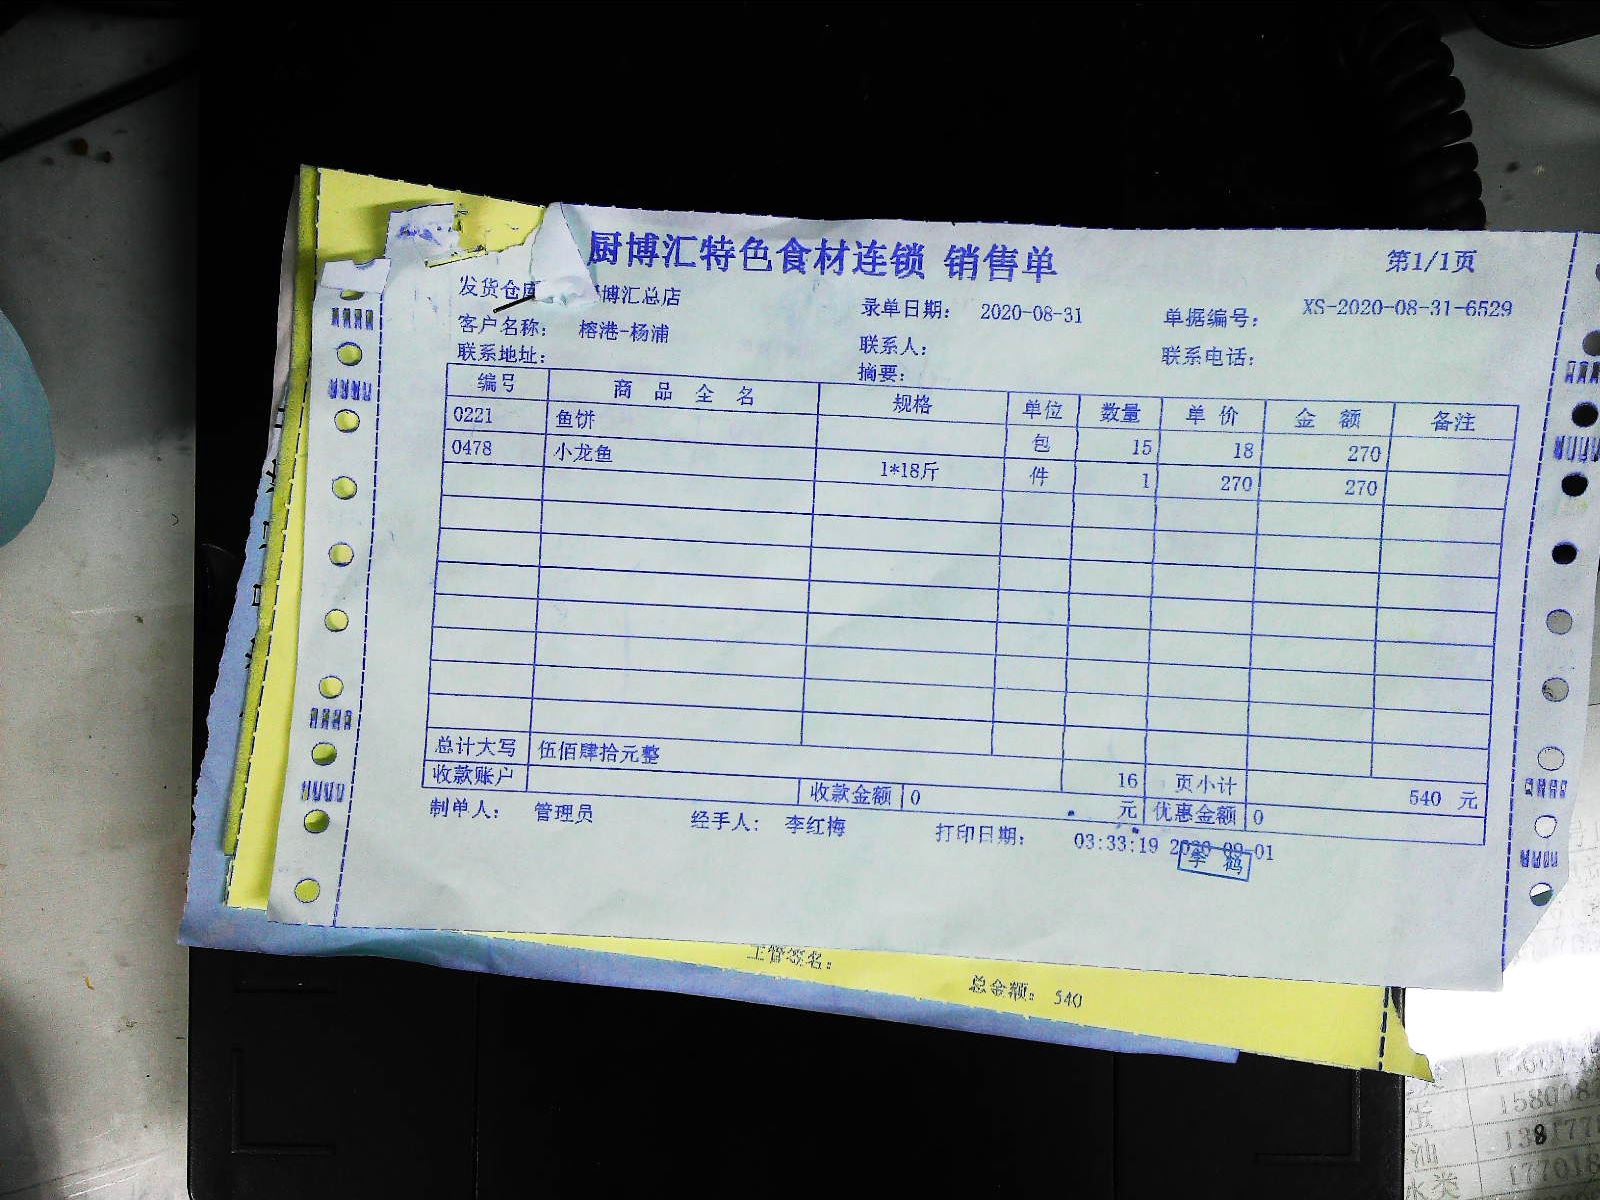 厨博汇特色食材连锁 销售单 第1/1页
发货仓库 博汇总店 录单日期: 2020-08-31 单据编号: XS-2020-08-31-6529
客户名称: 榕港-杨浦 联系人: 联系电话:
联系地址: 摘要:
编号 商品全名 规格 单位 数量 单价 金额 备注
0221 鱼饼 包 15 18 270
0478 小龙鱼 1*18斤 件 1 270 270
总计大写 伍佰肆拾元整 16 页小计 540 元
收款账户 收款金额 0 元 优惠金额 0
制单人: 管理员 经手人: 李红梅 打印日期: 03:33:19 2020-09-01
李鹤
主管签名:
总金额: 540
油